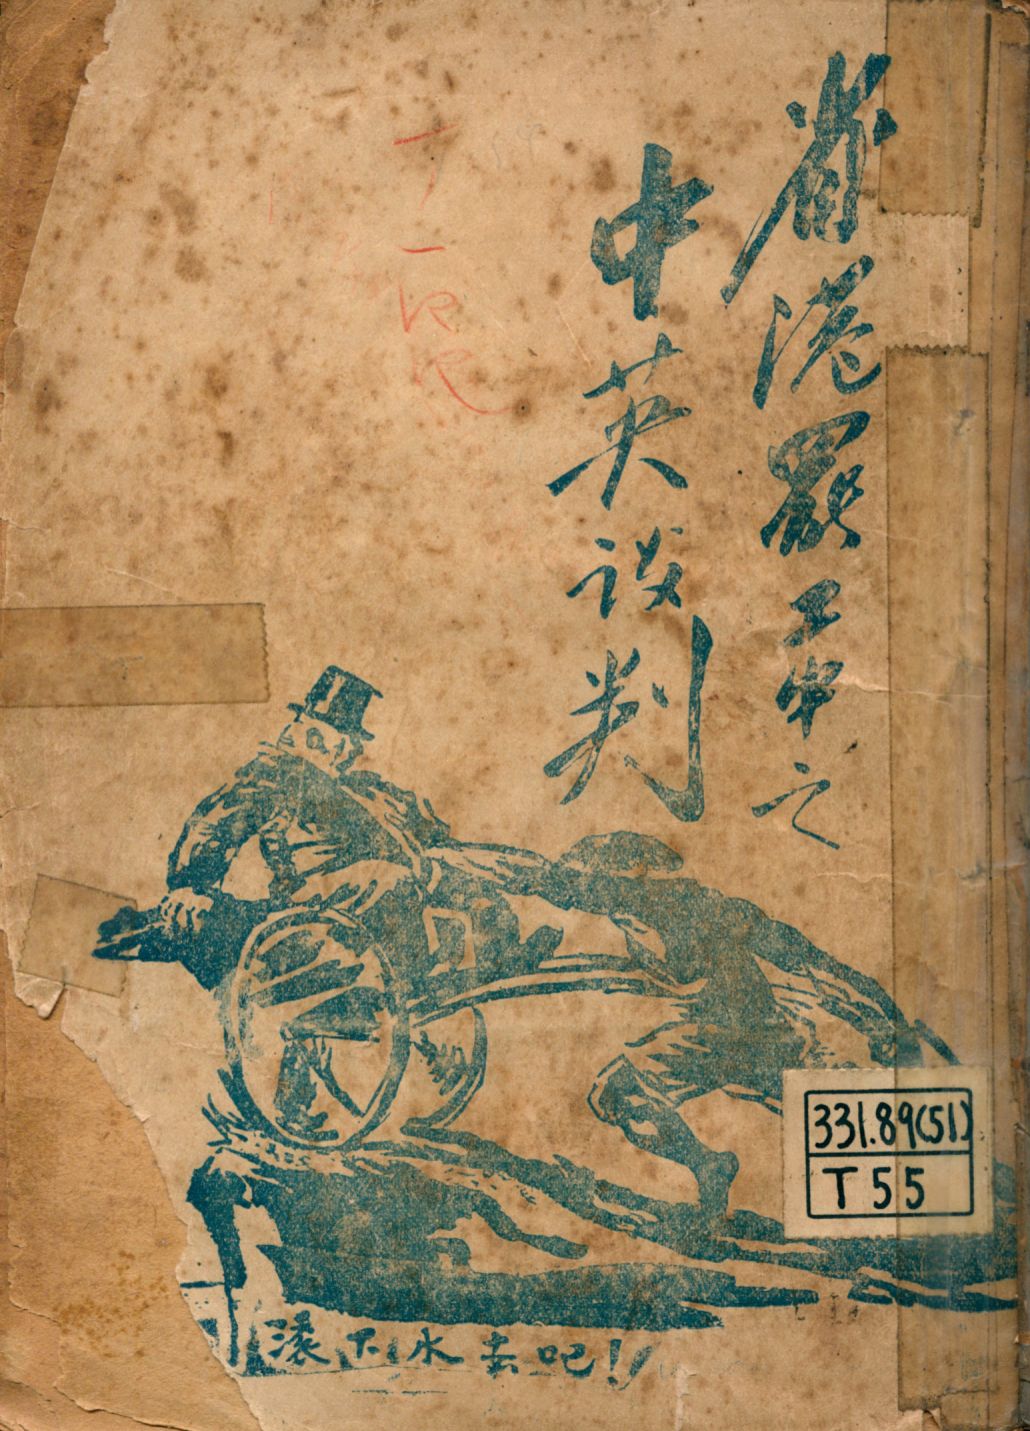 省港罷工中之
中英談判
滾下水去吧!
331.89(51)
T55